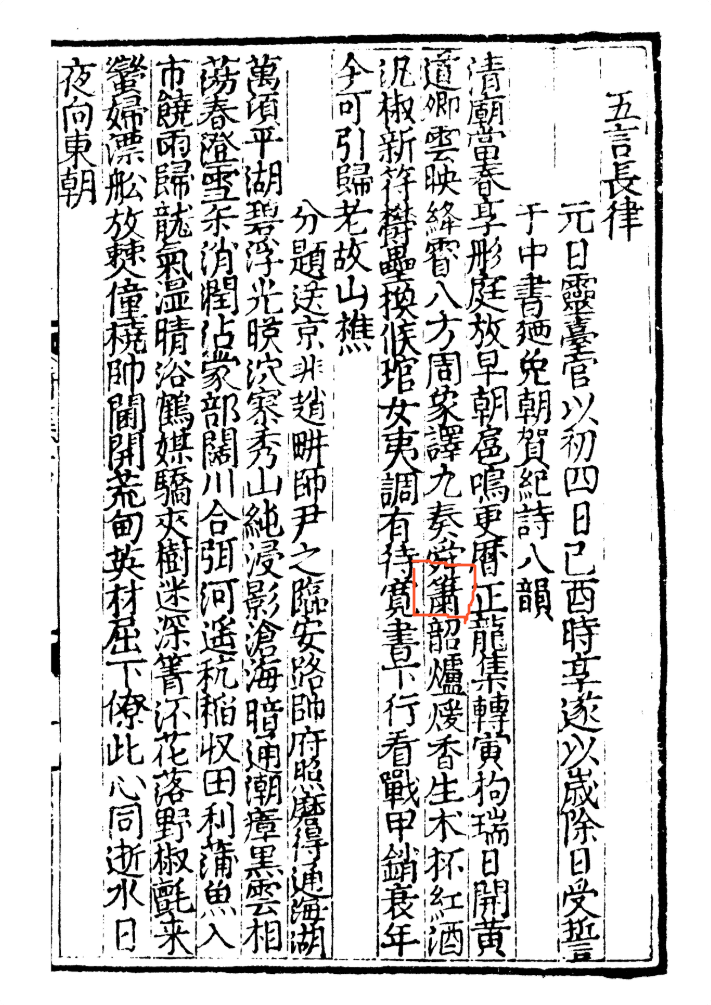 五言長律
元日靈臺官以初四日己酉時享遂以歲除日受誓
于中書廼免朝賀紀詩八韻
清廟當春享彤庭放早朝扈鳴更曆正龍集轉寅杓瑞日開黃
道卿雲映絳霄八方周象譯九奏舜簫韶爐煖香生木杯紅酒
汎椒新符欝壘換候琯女夷調有待寬書下行看戰甲銷衰年
全可引歸老故山樵
分題送京兆趙畊師尹之臨安路帥府照磨得通海湖
萬頃平湖碧浮光暎泬寥秀山純浸影滄海暗通潮瘴黑雲相
蕩春澄雪未消潤沾蒙部闊川合弭河遙秔稻収田利蒲魚入
市饒雨歸龍氣濕晴浴鶴媒驕夾樹迷深箐汱花落野椒氊来
蠻婦漂舩放僰僮橈帥閫開荒甸英材屈下僚此心同逝水日
夜向東朝